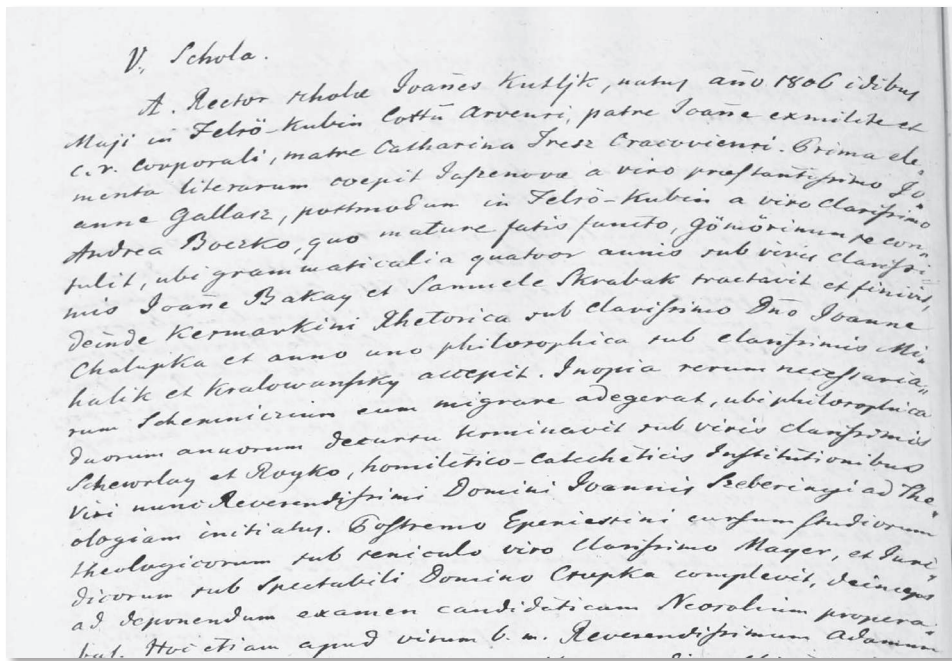 V. Schola.
A. Rector scholæ Joañes Kutljk, natus año 1806 idibus
Maji in Felsö-Kubin Cottũ Arvensi, patre Joañe exmilite et
c. r. corporali, matre Catharina Tresz Cracoviensi. Prima ele„
menta literarum coepit Jaszenovæ a viro præstantissimo Jo„
anne Gallasz, postmodum in Felsö-Kubin a viro clarissimo
Andrea Boczko, quo mature fatis functo, Gömörinum se con„
tulit, ubi grammaticalia quatuor annis sub viris clarissi„
mis Joañe Bakay et Samuele Skrabak tractavit et finivit,
deinde Kesmarkini Rhetorica sub clarissimo Dño Joanne
Chalupka et anno uno philosophica sub clarissimis Mi„
halik et Kralowanszky accepit. Inopia rerum necessaria„
rum Schemnicium eum migrare adegerat, ubi philosophica
duorum annorum decursu terminavit sub viris clarissimis
Schewrlay et Royko, homiletico-catecheticis Institutionibus
Viri nunc Reverendissimi Domini Joannis Szeberinyi ad The„
ologiam initiatus. Postremo Eperiessini cursum studiorum
theologicorum sub seniculo viro Clarissimo Mayer, et Juri„
dicorum sub Spectabili Domino Csupka complevit, deinceps
ad deponendum examen candidaticum Neosolium propera„
bat. Hoc etiam apud virum b. m. Reverendissimum Adamum